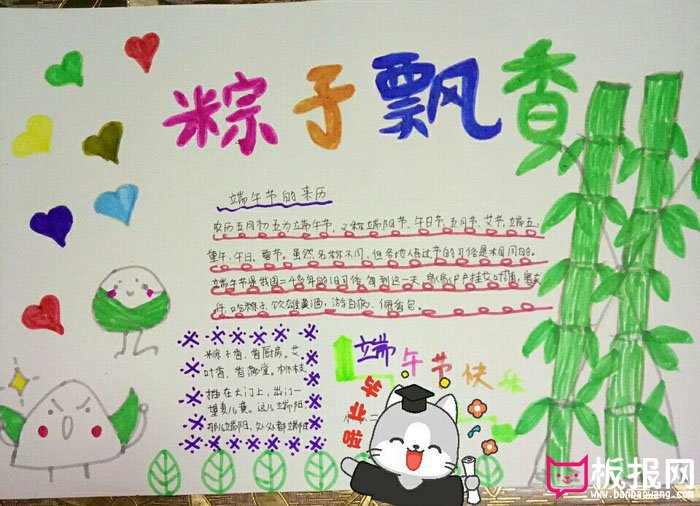 粽子飘香
端午节的来历
农历五月初五为端午节,又称端阳节、午日节、五月节、艾节、端五、
重午、午日、夏节。虽然名称不同,但各地人民过节的习俗是相同的。
端午节是我国二千多年的旧习俗,每到这一天,家家户户挂艾叶
吃粽子,饮雄黄酒,游百病,佩香包。
粽子香,香厨房。艾
叶香,香满堂。桃枝
插在大门上,出门一
望麦儿黄。这儿端阳,
那儿端阳,处处都端阳
端午节快乐
板报网
www.banbaowang.com